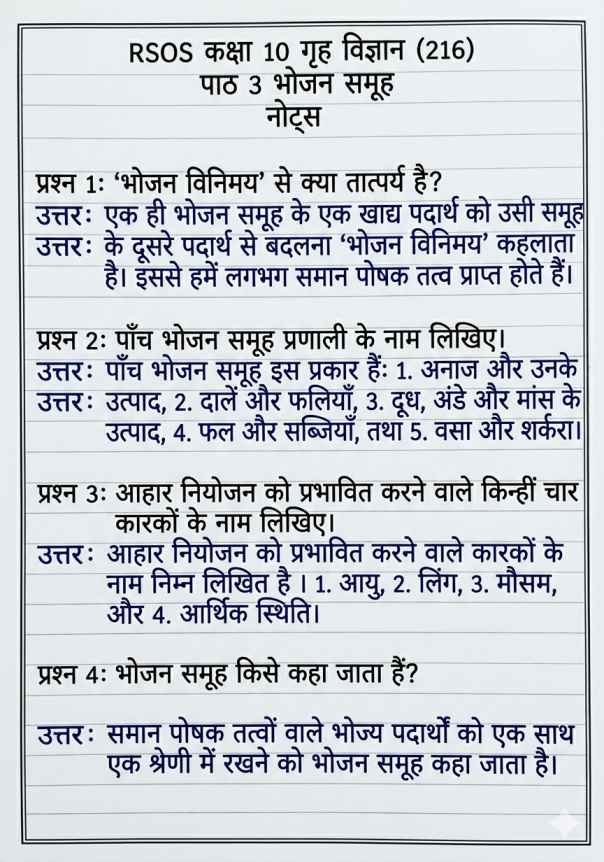 RSOS कक्षा 10 गृह विज्ञान (216)
पाठ 3 भोजन समूह
नोट्स
प्रश्न 1: ‘भोजन विनिमय’ से क्या तात्पर्य है?
उत्तर: एक ही भोजन समूह के एक खाद्य पदार्थ को उसी समूह
उत्तर: के दूसरे पदार्थ से बदलना ‘भोजन विनिमय’ कहलाता
है। इससे हमें लगभग समान पोषक तत्व प्राप्त होते हैं।
प्रश्न 2: पाँच भोजन समूह प्रणाली के नाम लिखिए।
उत्तर: पाँच भोजन समूह इस प्रकार हैं: 1. अनाज और उनके
उत्तर: उत्पाद, 2. दालें और फलियाँ, 3. दूध, अंडे और मांस के
उत्पाद, 4. फल और सब्जियाँ, तथा 5. वसा और शर्करा।
प्रश्न 3: आहार नियोजन को प्रभावित करने वाले किन्हीं चार
कारकों के नाम लिखिए।
उत्तर: आहार नियोजन को प्रभावित करने वाले कारकों के
नाम निम्न लिखित है । 1. आयु, 2. लिंग, 3. मौसम,
और 4. आर्थिक स्थिति।
प्रश्न 4: भोजन समूह किसे कहा जाता हैं?
उत्तर: समान पोषक तत्वों वाले भोज्य पदार्थों को एक साथ
एक श्रेणी में रखने को भोजन समूह कहा जाता है।